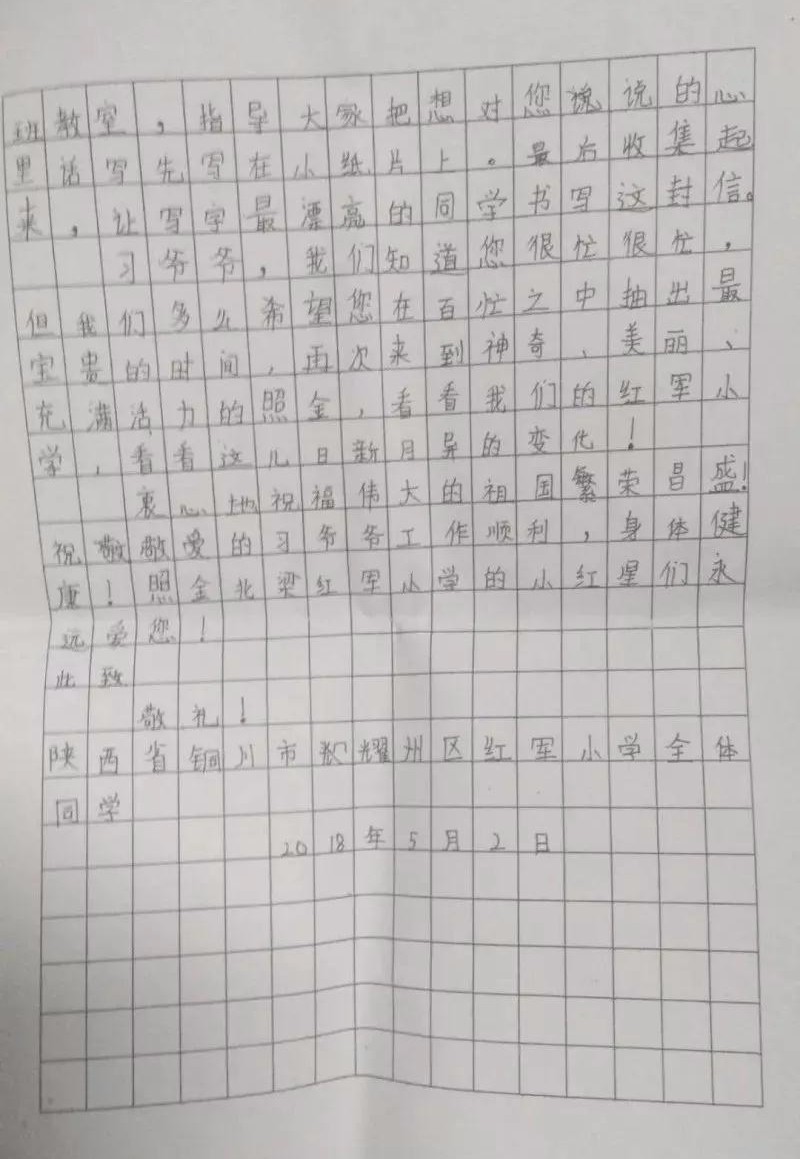 班教室，指导大家把想对您说说的心
里话写先写在小纸片上。最后收集起
来，让写字最漂亮的同学书写这封信。
习爷爷，我们知道您很忙很忙，
但我们多么希望您在百忙之中抽出最
宝贵的时间，再次来到神奇、美丽、
充满活力的照金，看看我们的红军小
学，看看这儿日新月异的变化！
衷心地祝福伟大的祖国繁荣昌盛！
祝敬敬爱的习爷爷工作顺利，身体健
康！照金北梁红军小学的小红星们永
远爱您！
此致
敬礼！
陕西省铜川市耀州区红军小学全体
同学
2018年5月2日